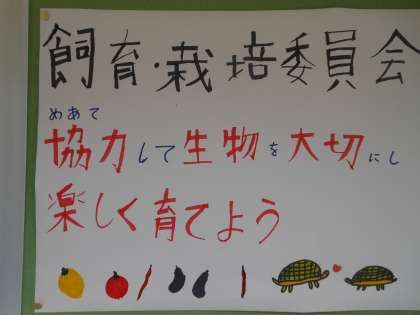 飼育・栽培委員会
めあて
協力して生物を大切にし
楽しく育てよう